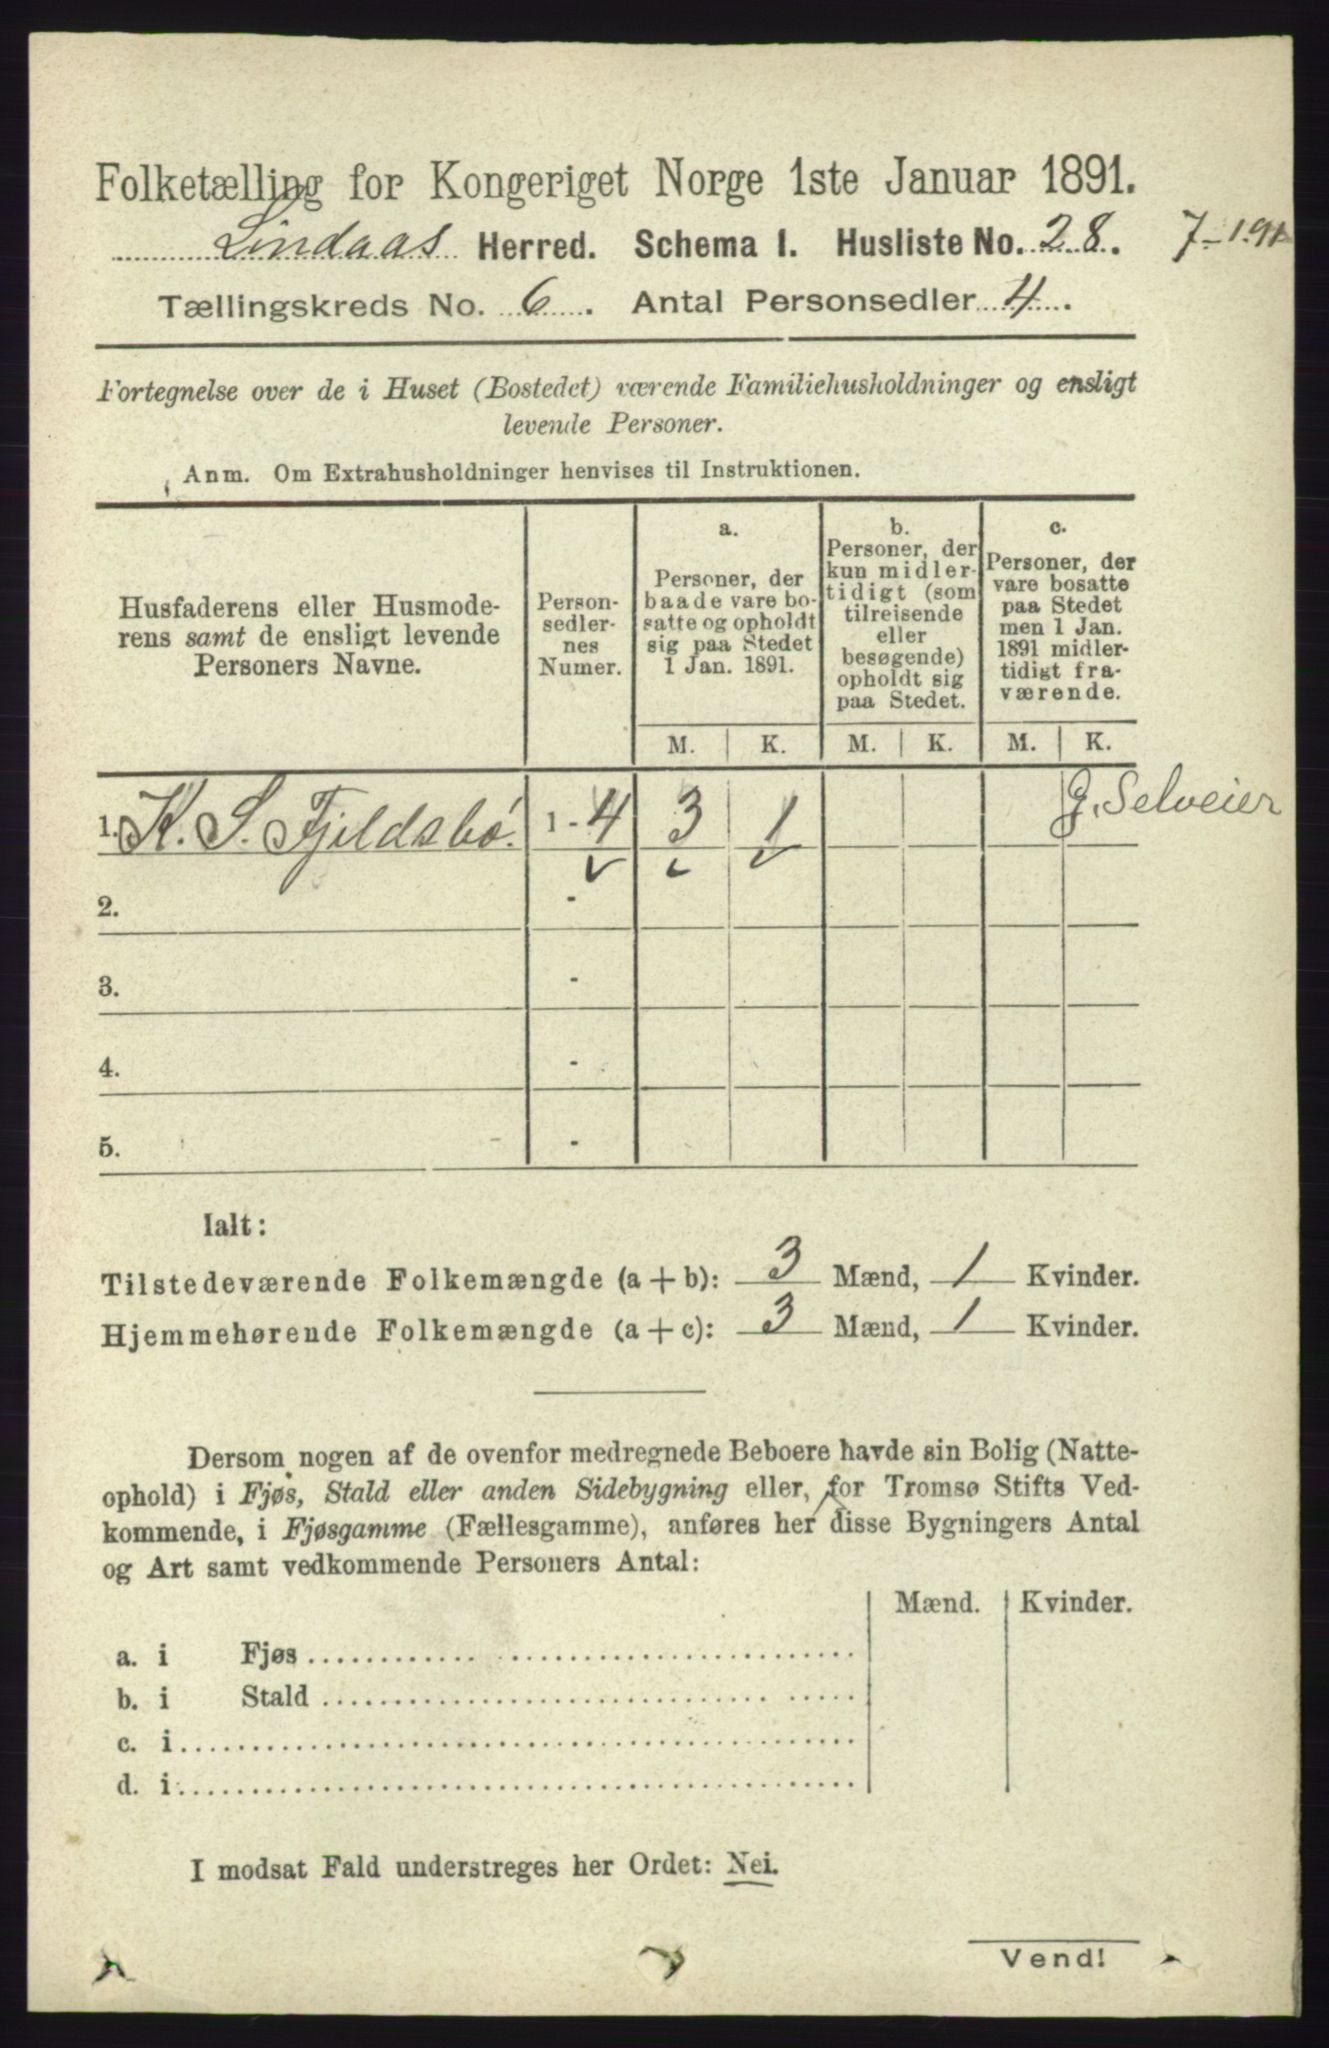 Folketælling for Kongeriget Norge 1ste Januar 1891.
Lindaas Herred. Schema I. Husliste No. 28. 7-1.91
Tællingskreds No. 6. Antal Personsedler 4.
Fortegnelse over de i Huset (Bostedet) værende Familiehusholdninger og ensligt
levende Personer.
Anm. Om Extrahusholdninger henvises til Instruktionen.
Husfaderens eller Husmode-
rens samt de ensligt levende
Personers Navne.
Person-
sedler-
nes
Numer.
a.
Personer, der
baade vare bo-
satte og opholdt
sig paa Stedet
1 Jan. 1891.
b.
Personer, der
kun midler-
tidigt (som
tilreisende
eller
besøgende)
opholdt sig
paa Stedet.
c.
Personer, der
vare bosatte
paa Stedet
men 1 Jan.
1891 midler-
tidigt fra-
værende.
M. K. M. K. M. K.
1. K. S. Fjeldsbö. 1 - 4 3 1 G. Selveier
2. -
3. -
4. -
5. -
Ialt:
Tilstedeværende Folkemængde (a + b): 3 Mænd, 1 Kvinder.
Hjemmehørende Folkemængde (a + c): 3 Mænd, 1 Kvinder.
Dersom nogen af de ovenfor medregnede Beboere havde sin Bolig (Natte-
ophold) i Fjøs, Stald eller anden Sidebygning eller, for Tromsø Stifts Ved-
kommende, i Fjøsgamme (Fællesgamme), anføres her disse Bygningers Antal
og Art samt vedkommende Personers Antal:
Mænd. Kvinder.
a. i Fjøs
b. i Stald
c. i
d. i
I modsat Fald understreges her Ordet: Nei.
Vend!